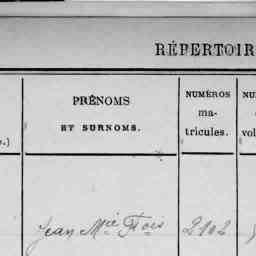 RÉPERTOIR
PRÉNOMS
ET SURNOMS.
NUMÉROS
ma-
tricules.
NU
vol
.)
Jean Mie Fois 2102